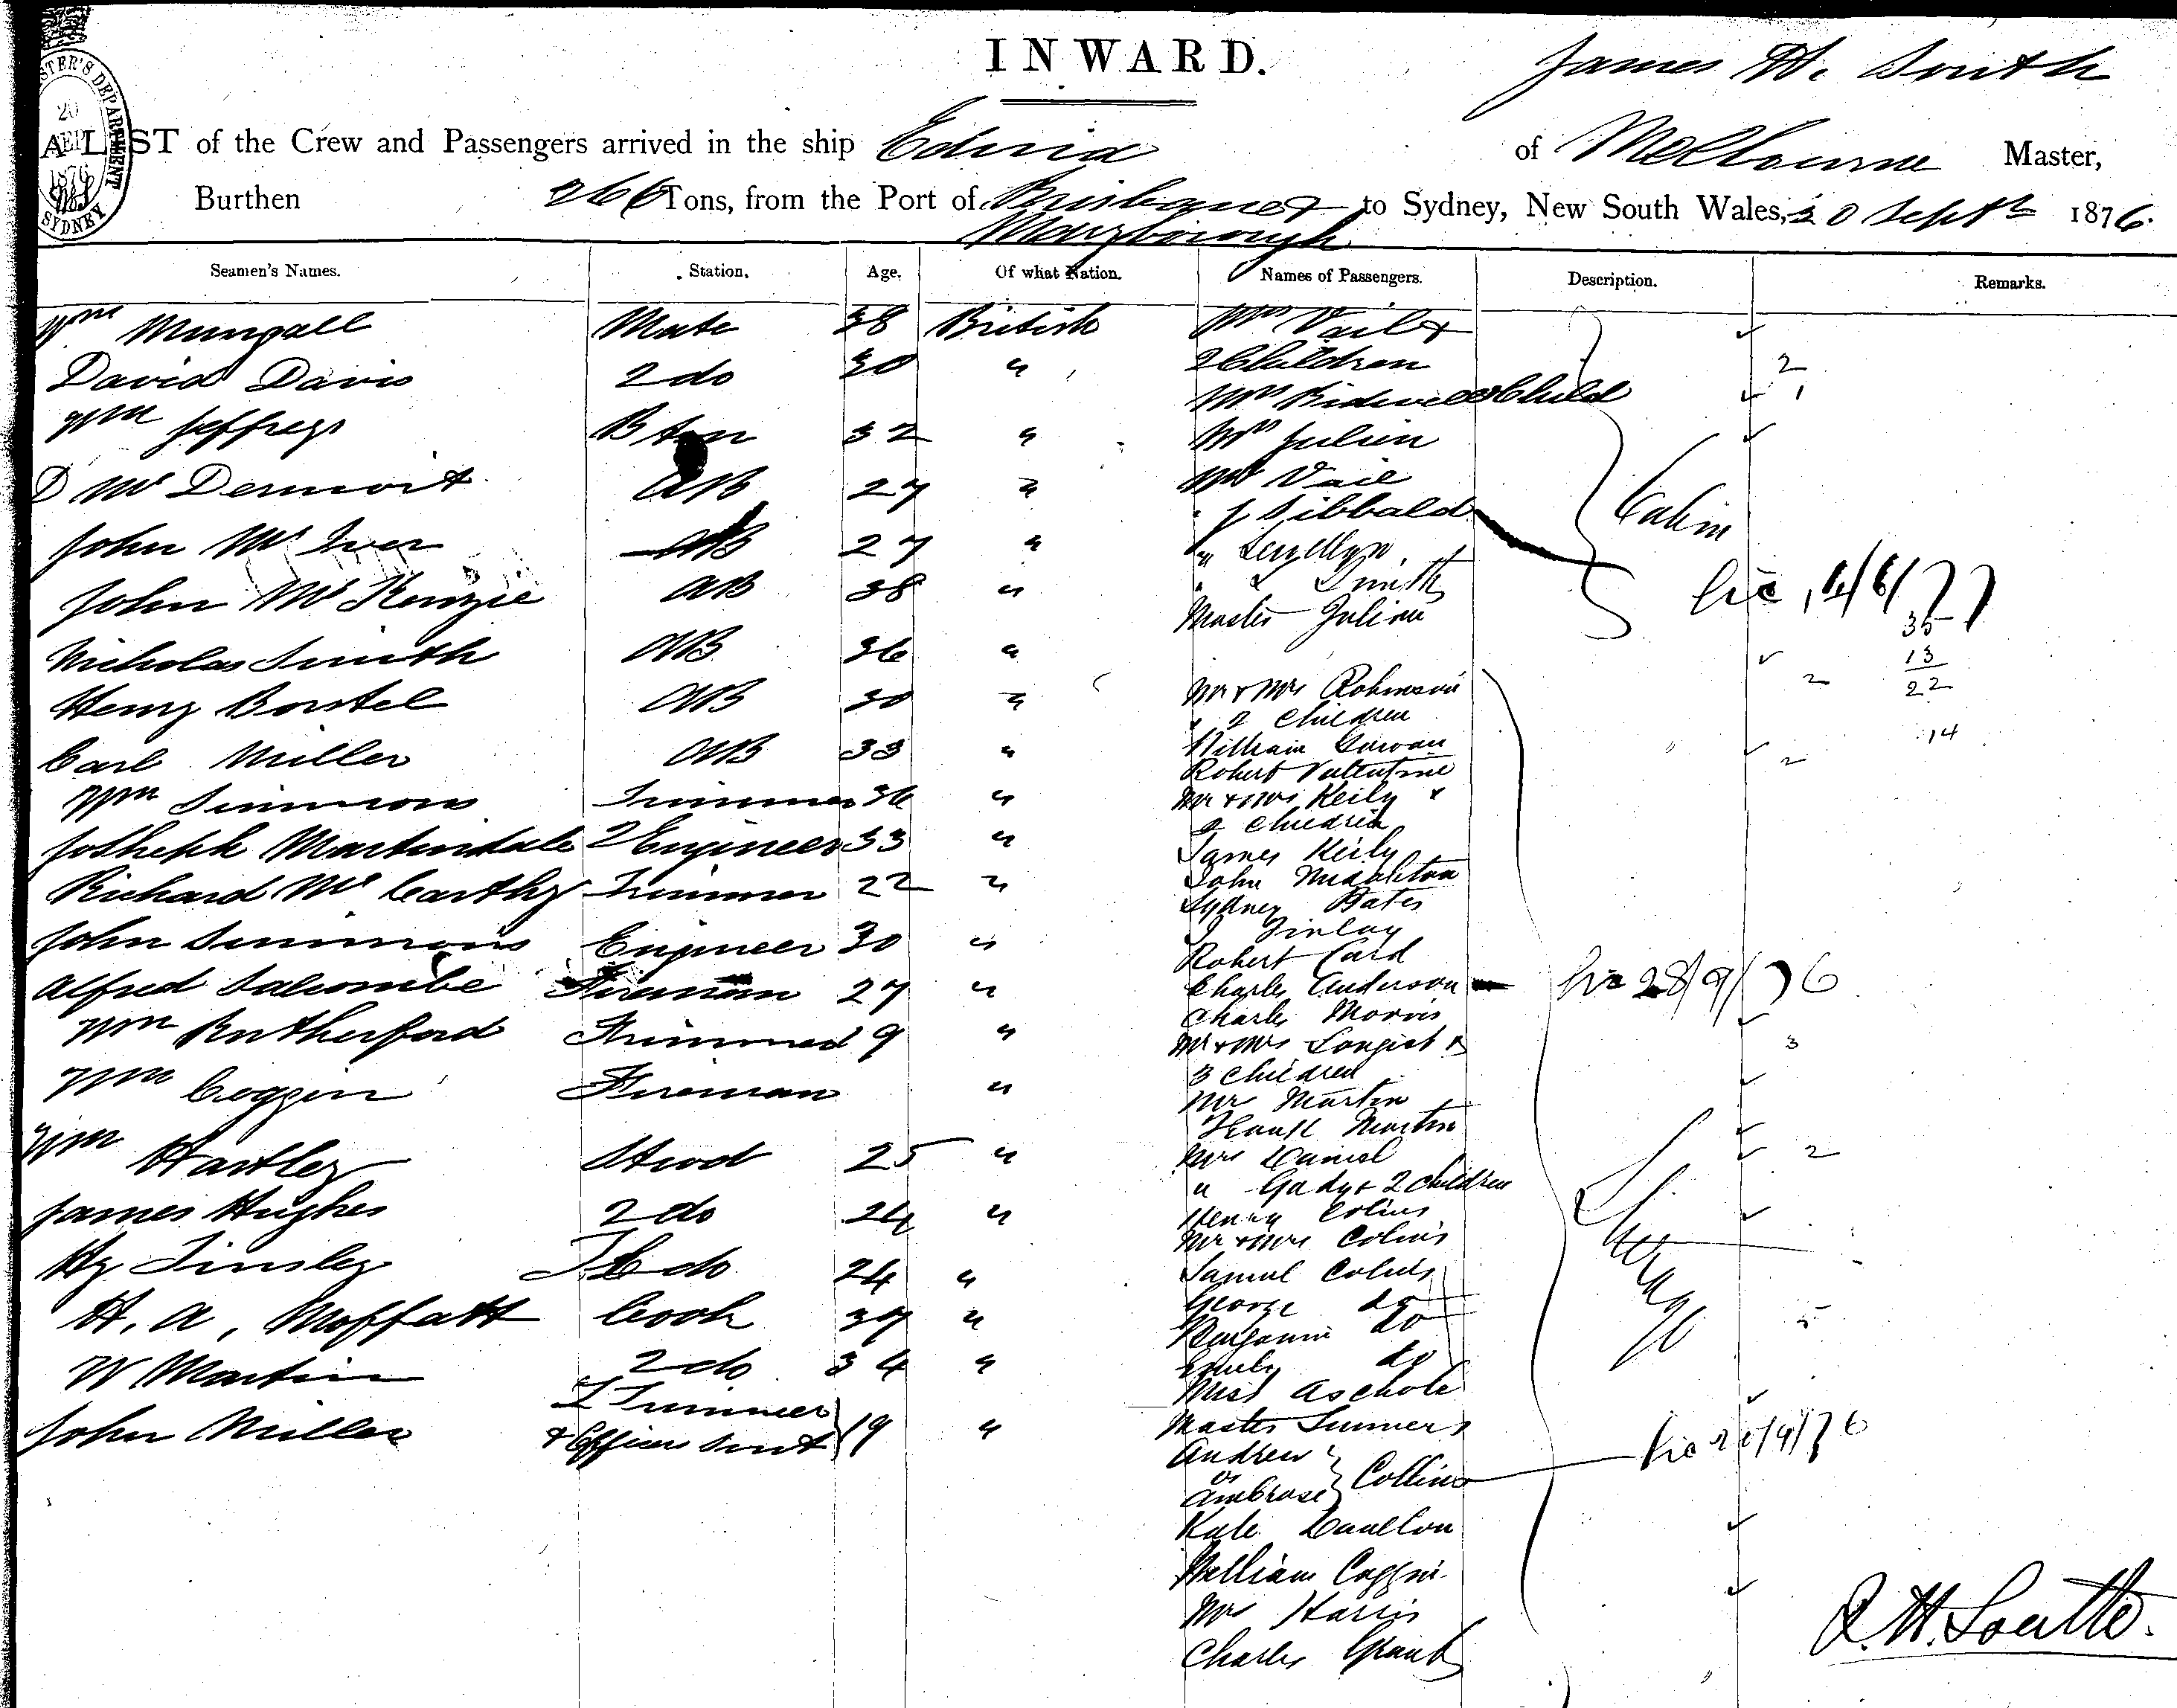 INWARD.
James H. South
A LIST of the Crew and Passengers arrived in the ship Edina of Melbourne Master,
Burthen 266 Tons, from the Port of Brisbane & to Sydney, New South Wales, 20 Septr 1876.
Maryborough
Seamen's Names. Station. Age. Of what Nation. Names of Passengers. Description. Remarks.
Wm Mungall Mate 38 British Mrs Vail &
David Davis 2 do 30 " 2 Children 2
Mrs Bidwell & Child 1
Wm Jeffreys Bsn 32 " Mrs Julien
D McDermott AB 27 " Mr Vail
" J Sibbald Cabin
John McIver AB 27 " " Lewellyn
John McKenzie AB 38 " " Smith
Master Julien
Nicholas Smith AB 36 "
35
13
22
14
Henry Borstel AB 30 " Mr & Mrs Robinson 2
& 2 Children
Carl Miller AB 33 " William Gowan
Robert Valentine 2
Wm Simmons Trimmer 36 " Mr & Mrs Keily &
2 children
Jotheph Martindale 2 Engineer 33 " James Keily
Richard McCarthy Trimmer 22 " John Middleton
Sydney Bates
John Simmons Engineer 30 " J Finlay
Robert Card
Alfred Salcombe Fireman 27 " Charles Anderson 28/9/76
Charles Morris
Wm Rutherford Trimmer 19 " Mr & Mrs Longist & 3
3 Children
Wm Coggin Fireman " Mr Martin
Frank Martin
Wm Hartley Stwd 25 " Mrs Daniel 2
" Gady & 2 children
James Hughes 2 do 24 " Henry Colins
Mr & Mrs Colins
Hy Tinsley F C do 24 " Samuel Colins
Steerage
H. A, Moffatt Cook 37 " George do
Benjamin do 5
W Martin 2 do 34 " Emily do
Miss Aschole
John Miller Trimmer & Officers Svnt 19 " Master Sumners
Andrew or Ambrose } Collins
Kate Daulton
William Coggin
Mr Harris
Charles Grant